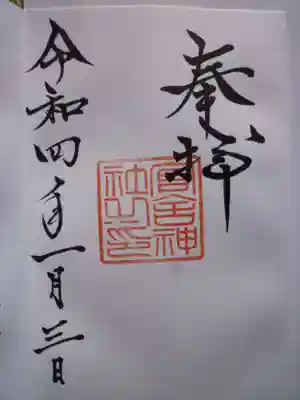 奉拝
宮古神
社之印
令和四年一月三日